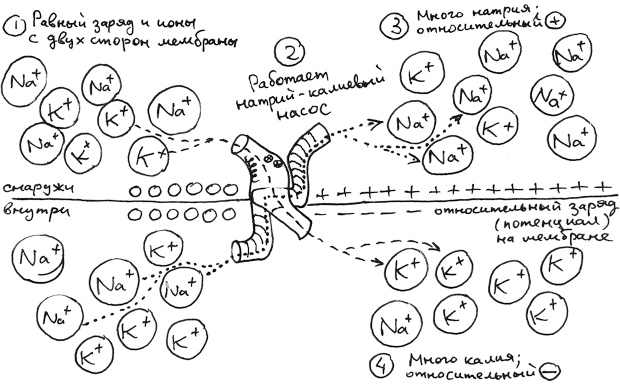 ① Равный заряд и ионы
с двух сторон мембраны
②
Работает
натрий-калиевый
насос
③ Много натрия;
относительный ⊕
Na⁺ Na⁺ K⁺ K⁺ Na⁺ Na⁺ K⁺ K⁺
K⁺ Na⁺ Na⁺ Na⁺ Na⁺ Na⁺ K⁺ Na⁺ Na⁺
снаружи
+ + + + + + + + + + + + + + + +
внутри
относительный заряд
(потенциал)
на мембране
Na⁺ K⁺ Na⁺ Na⁺ Na⁺ K⁺ K⁺ K⁺
K⁺ K⁺ K⁺ K⁺ Na⁺ K⁺ K⁺
④ Много калия;
относительный ⊖